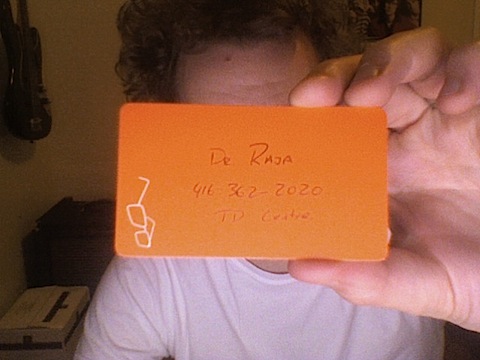 Dr Raja
416-362-2020
TD Centre